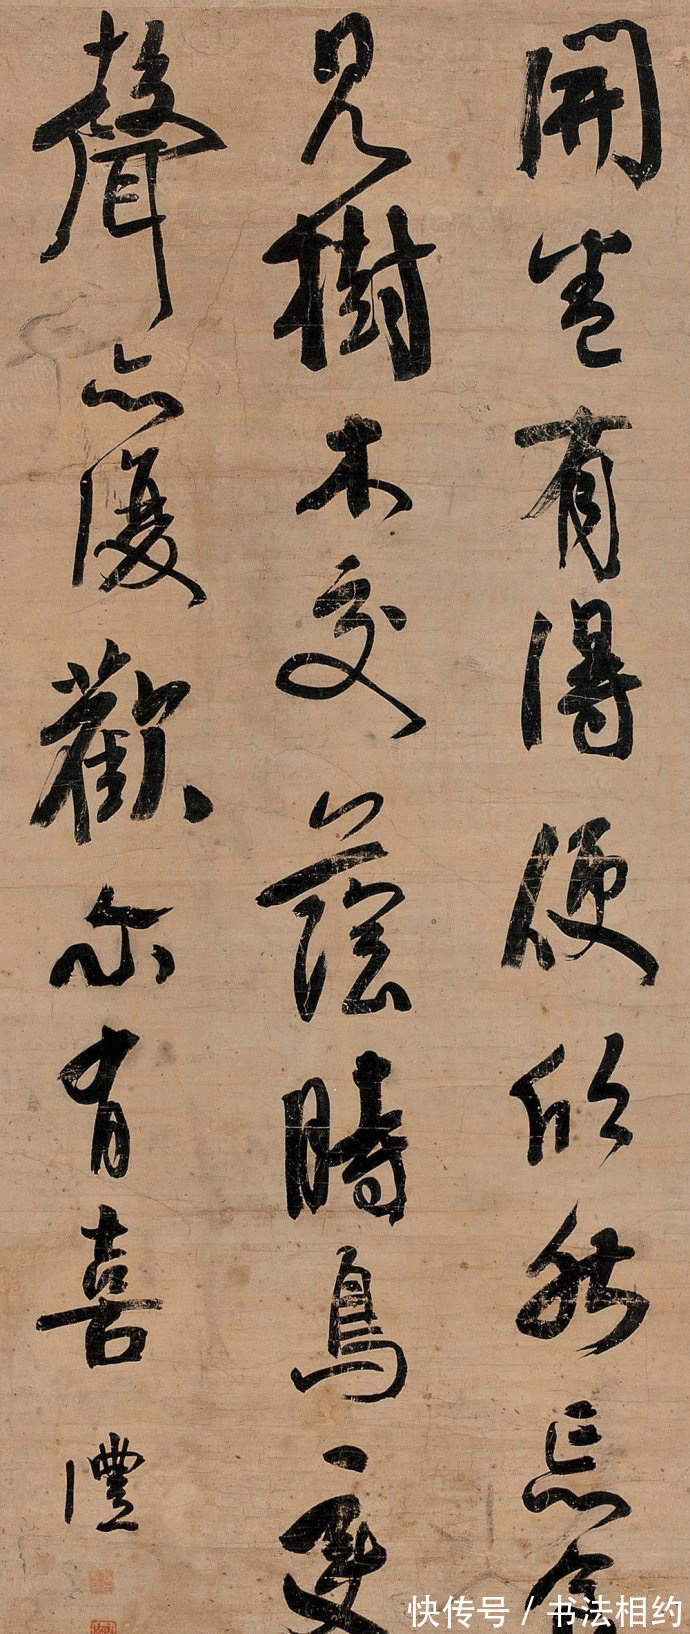 開卷有得便欣然忘食
見樹木交蔭時鳥變
聲亦復歡尔有喜
澧
快传号 / 书法相约